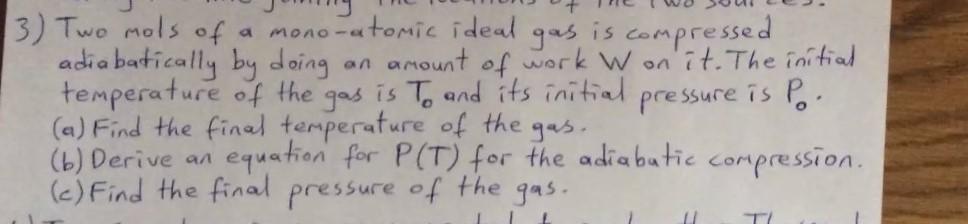 joining the locations of the two sources.
3) Two mols of a mono-atomic ideal gas is compressed
adiabatically by doing an amount of work W on it. The initial
temperature of the gas is T₀ and its initial pressure is P₀.
(a) Find the final temperature of the gas.
(b) Derive an equation for P(T) for the adiabatic compression.
(c) Find the final pressure of the gas.